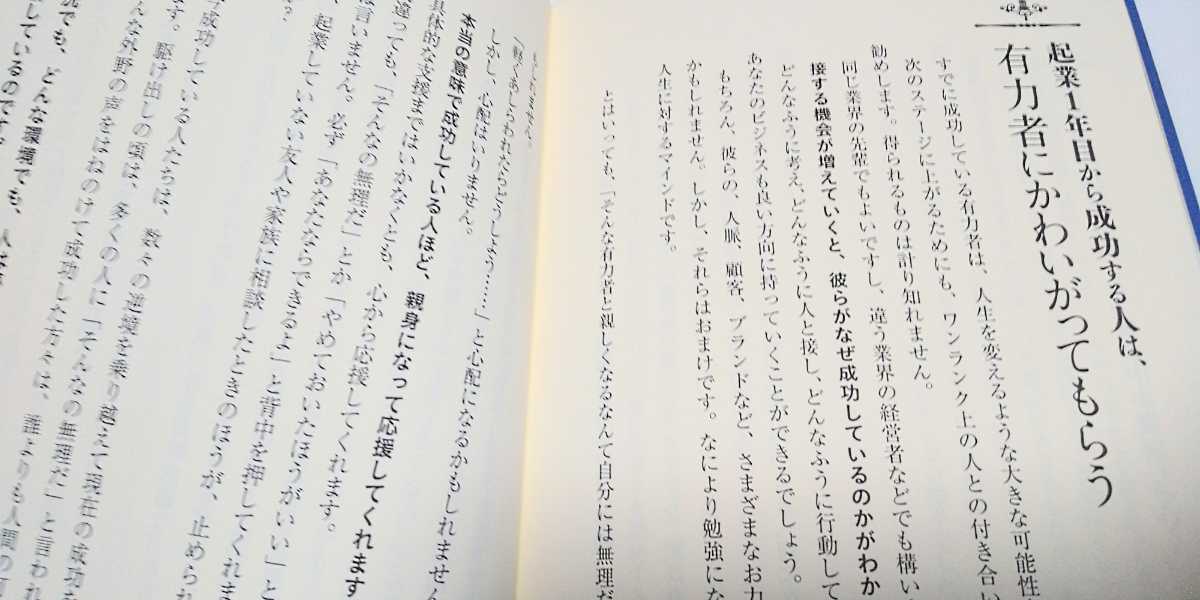 起業1年目から成功する人は、
有力者にかわいがってもらう
すでに成功している有力者は、人生を変えるような大きな可能性
次のステージに上がるためにも、ワンランク上の人との付き合い
勧めします。得られるものは計り知れません。
同じ業界の先輩でもよいですし、違う業界の経営者などでも構い
接する機会が増えていくと、彼らがなぜ成功しているのかがわか
どんなふうに考え、どんなふうに人と接し、どんなふうに行動して
あなたのビジネスも良い方向に持っていくことができるでしょう。
もちろん、彼らの、人脈、顧客、ブランドなど、さまざまなお力
かもしれません。しかし、それらはおまけです。なにより勉強にな
人生に対するマインドです。
とはいっても、「そんな有力者と親しくなるなんて自分には無理だ
しかし、心配はいりません。
本当の意味で成功している人ほど、親身になって応援してくれます
具体的な支援まではいかなくとも、心から応援してくれます。
違っても、「そんなの無理だ」とか「やめておいたほうがいい」と
は言いません。必ず「あなたならできるよ」と背中を押してくれま
起業していない友人や家族に相談したときのほうが、止められ
成功している人たちは、数々の逆境を乗り越えて現在の成功を
ます。駆け出しの頃は、多くの人に「そんなの無理だ」と言われ
んな外野の声をはねのけて成功した方々は、誰よりも人間の可
況でも、どんな環境でも、人は
しているのです。